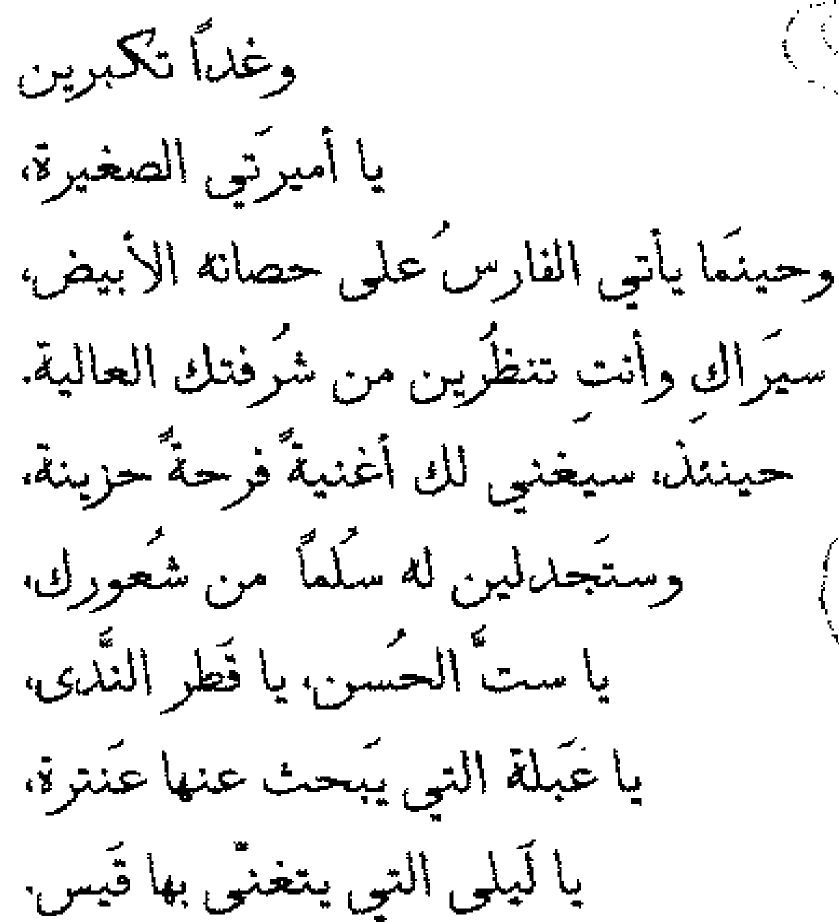 وغداً تكبرين
يا أميرَتي الصغيرة،
وحينَما يأتي الفارسُ على حصانه الأبيض،
سيَراكِ وأنتِ تنظُرين من شُرفتك العالية.
حينئذ، سيَغني لك أغنيةً فرحةً حزينة،
وستَجدلين له سُلماً من شُعورك،
يا ستَّ الحُسن، يا قَطر النَّدى،
يا عَبلة التي يَبحث عنها عَنترة،
يا لَيلى التي يتغنّى بها قَيس.